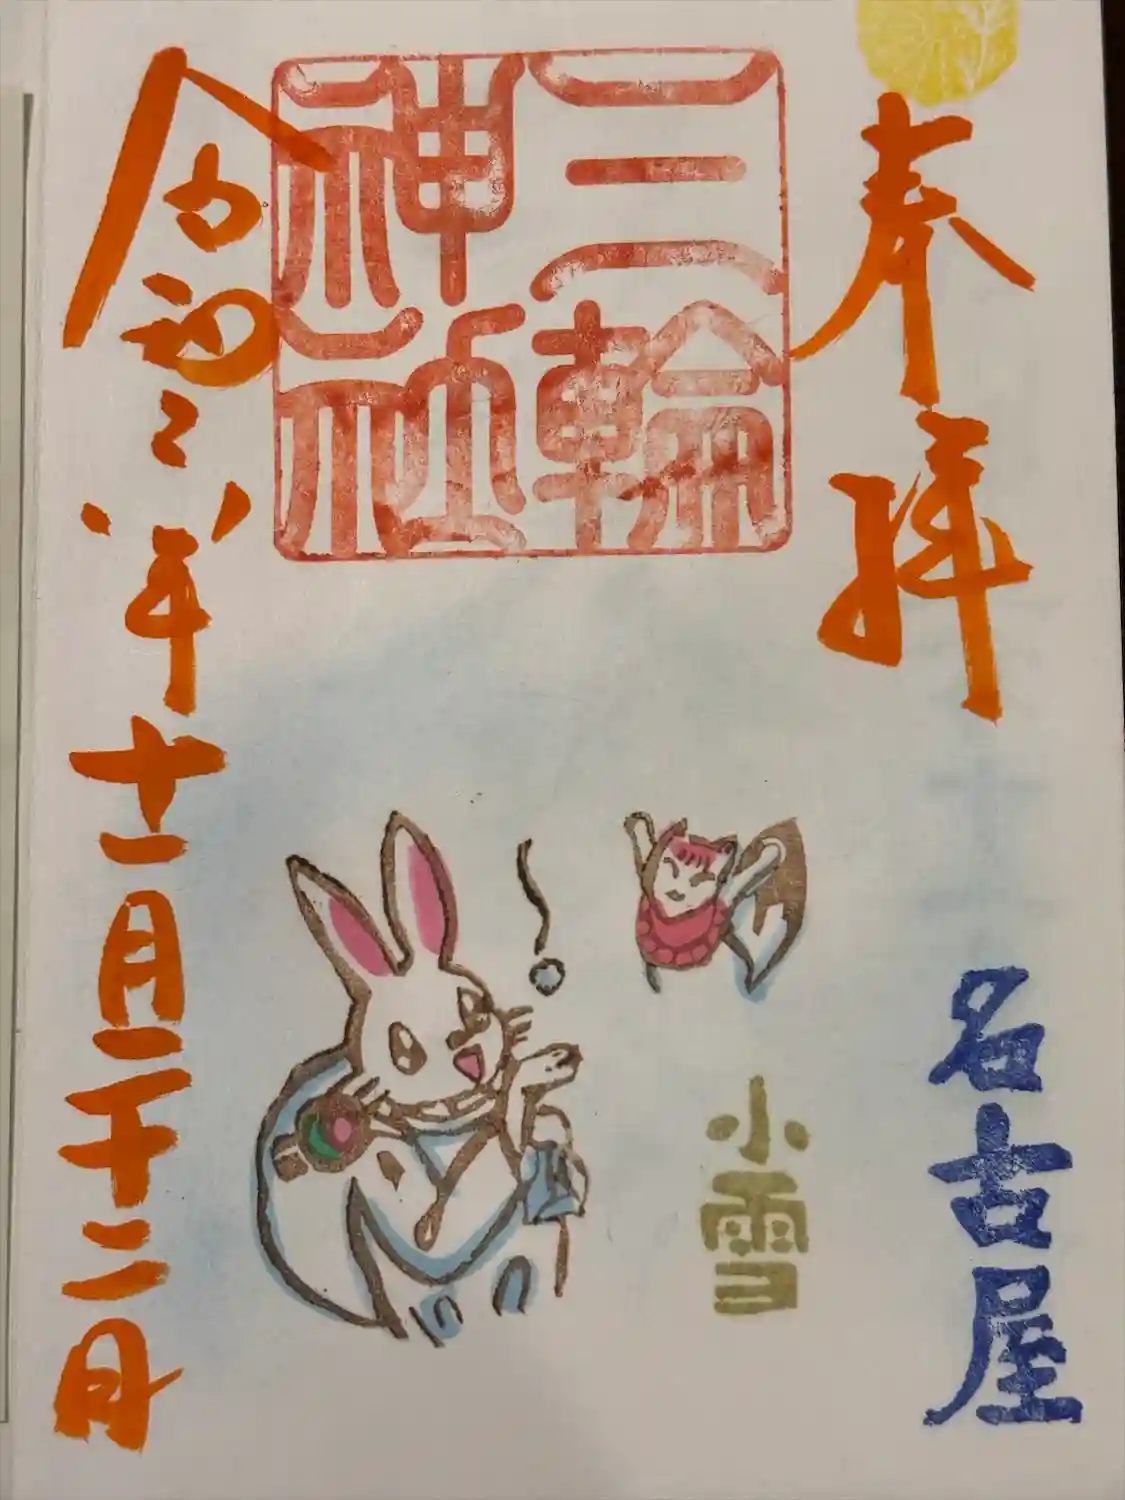 奉拝
名古屋
三輪
神社
小雪
令和六年十一月二十二日